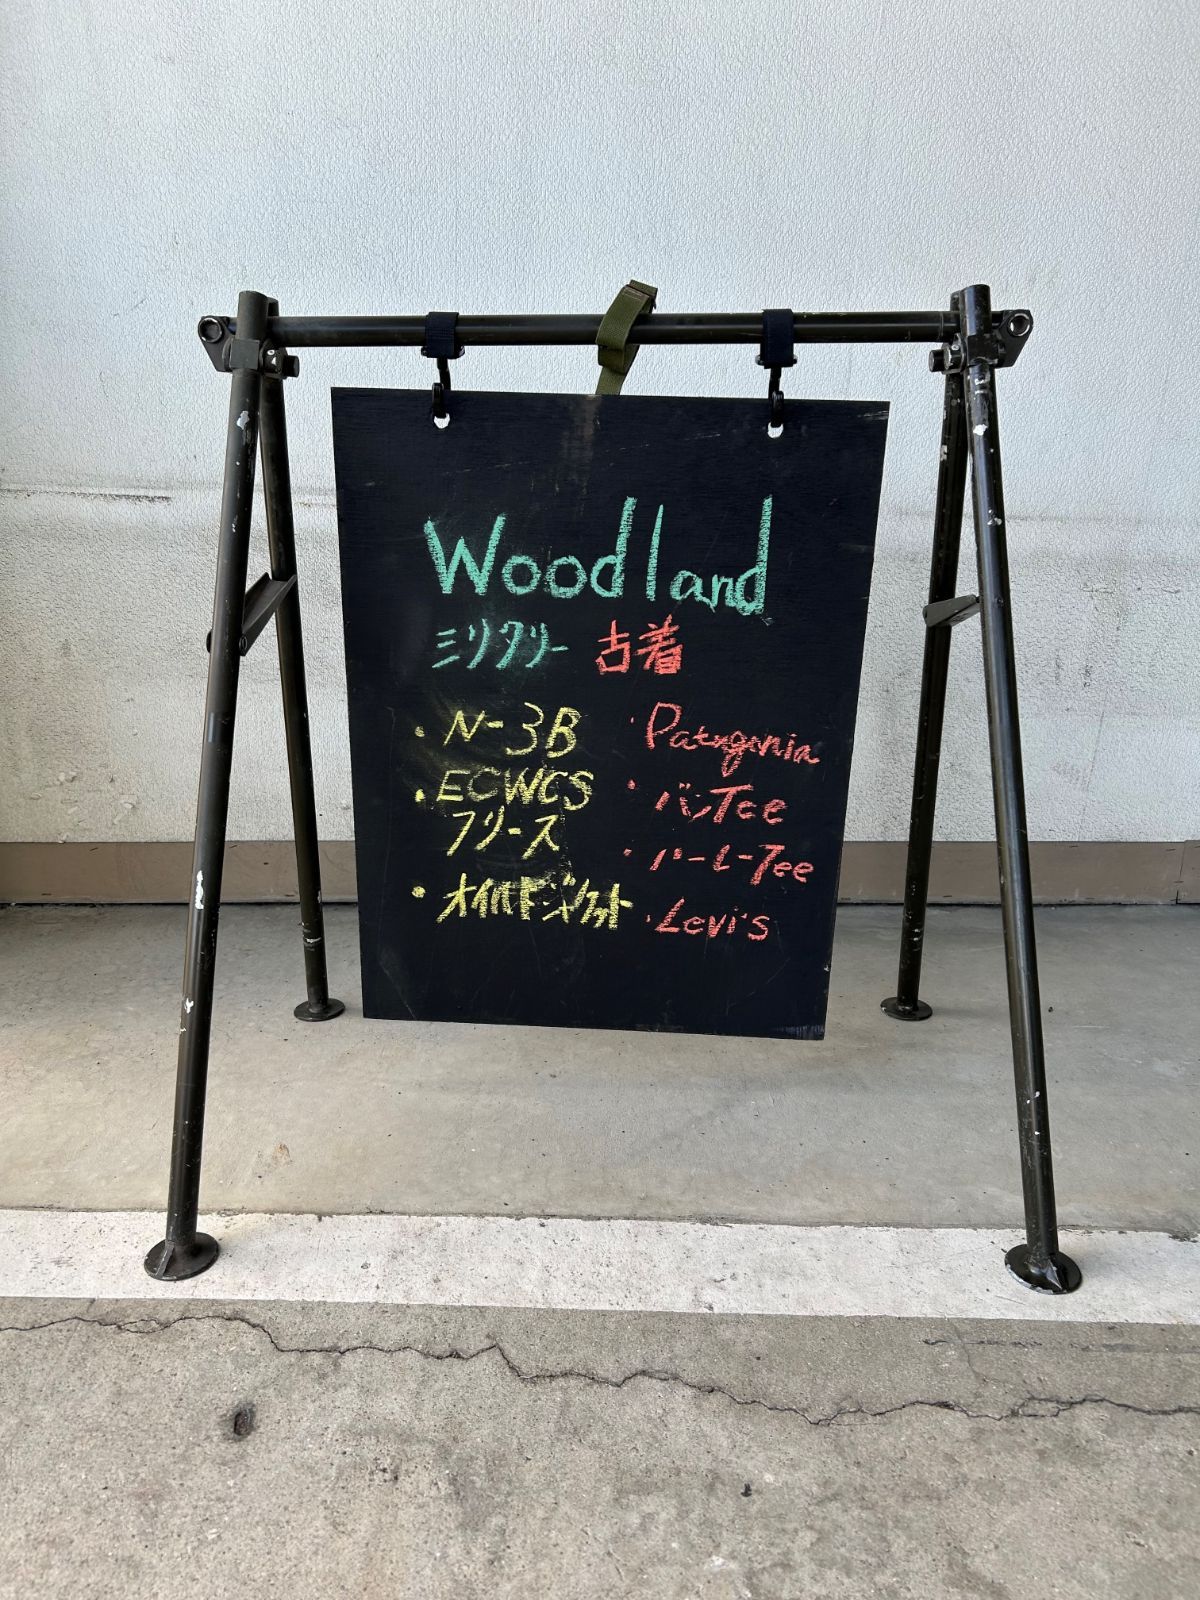 Woodland
ミリタリー 古着
・N-3B
・ECWCS
フリース
・オイルドジャケット
・Patagonia
・バンTee
・ハーレーTee
・Levi's